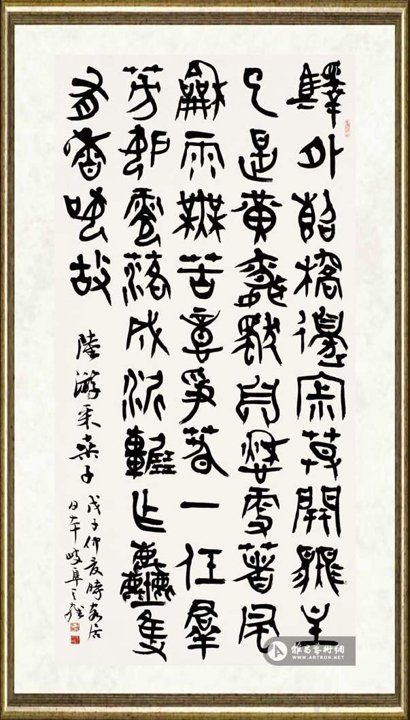 驛外斷橋邊寂莫開無主
已是黃昏獨自愁更著風
龢雨無苦意爭春一任羣
芳妒零落成泥碾作塵隻
有香如故
陸游采桑子
戊子仲夏時客居
日本岐阜
雅昌藝術網
WWW.ARTRON.NET